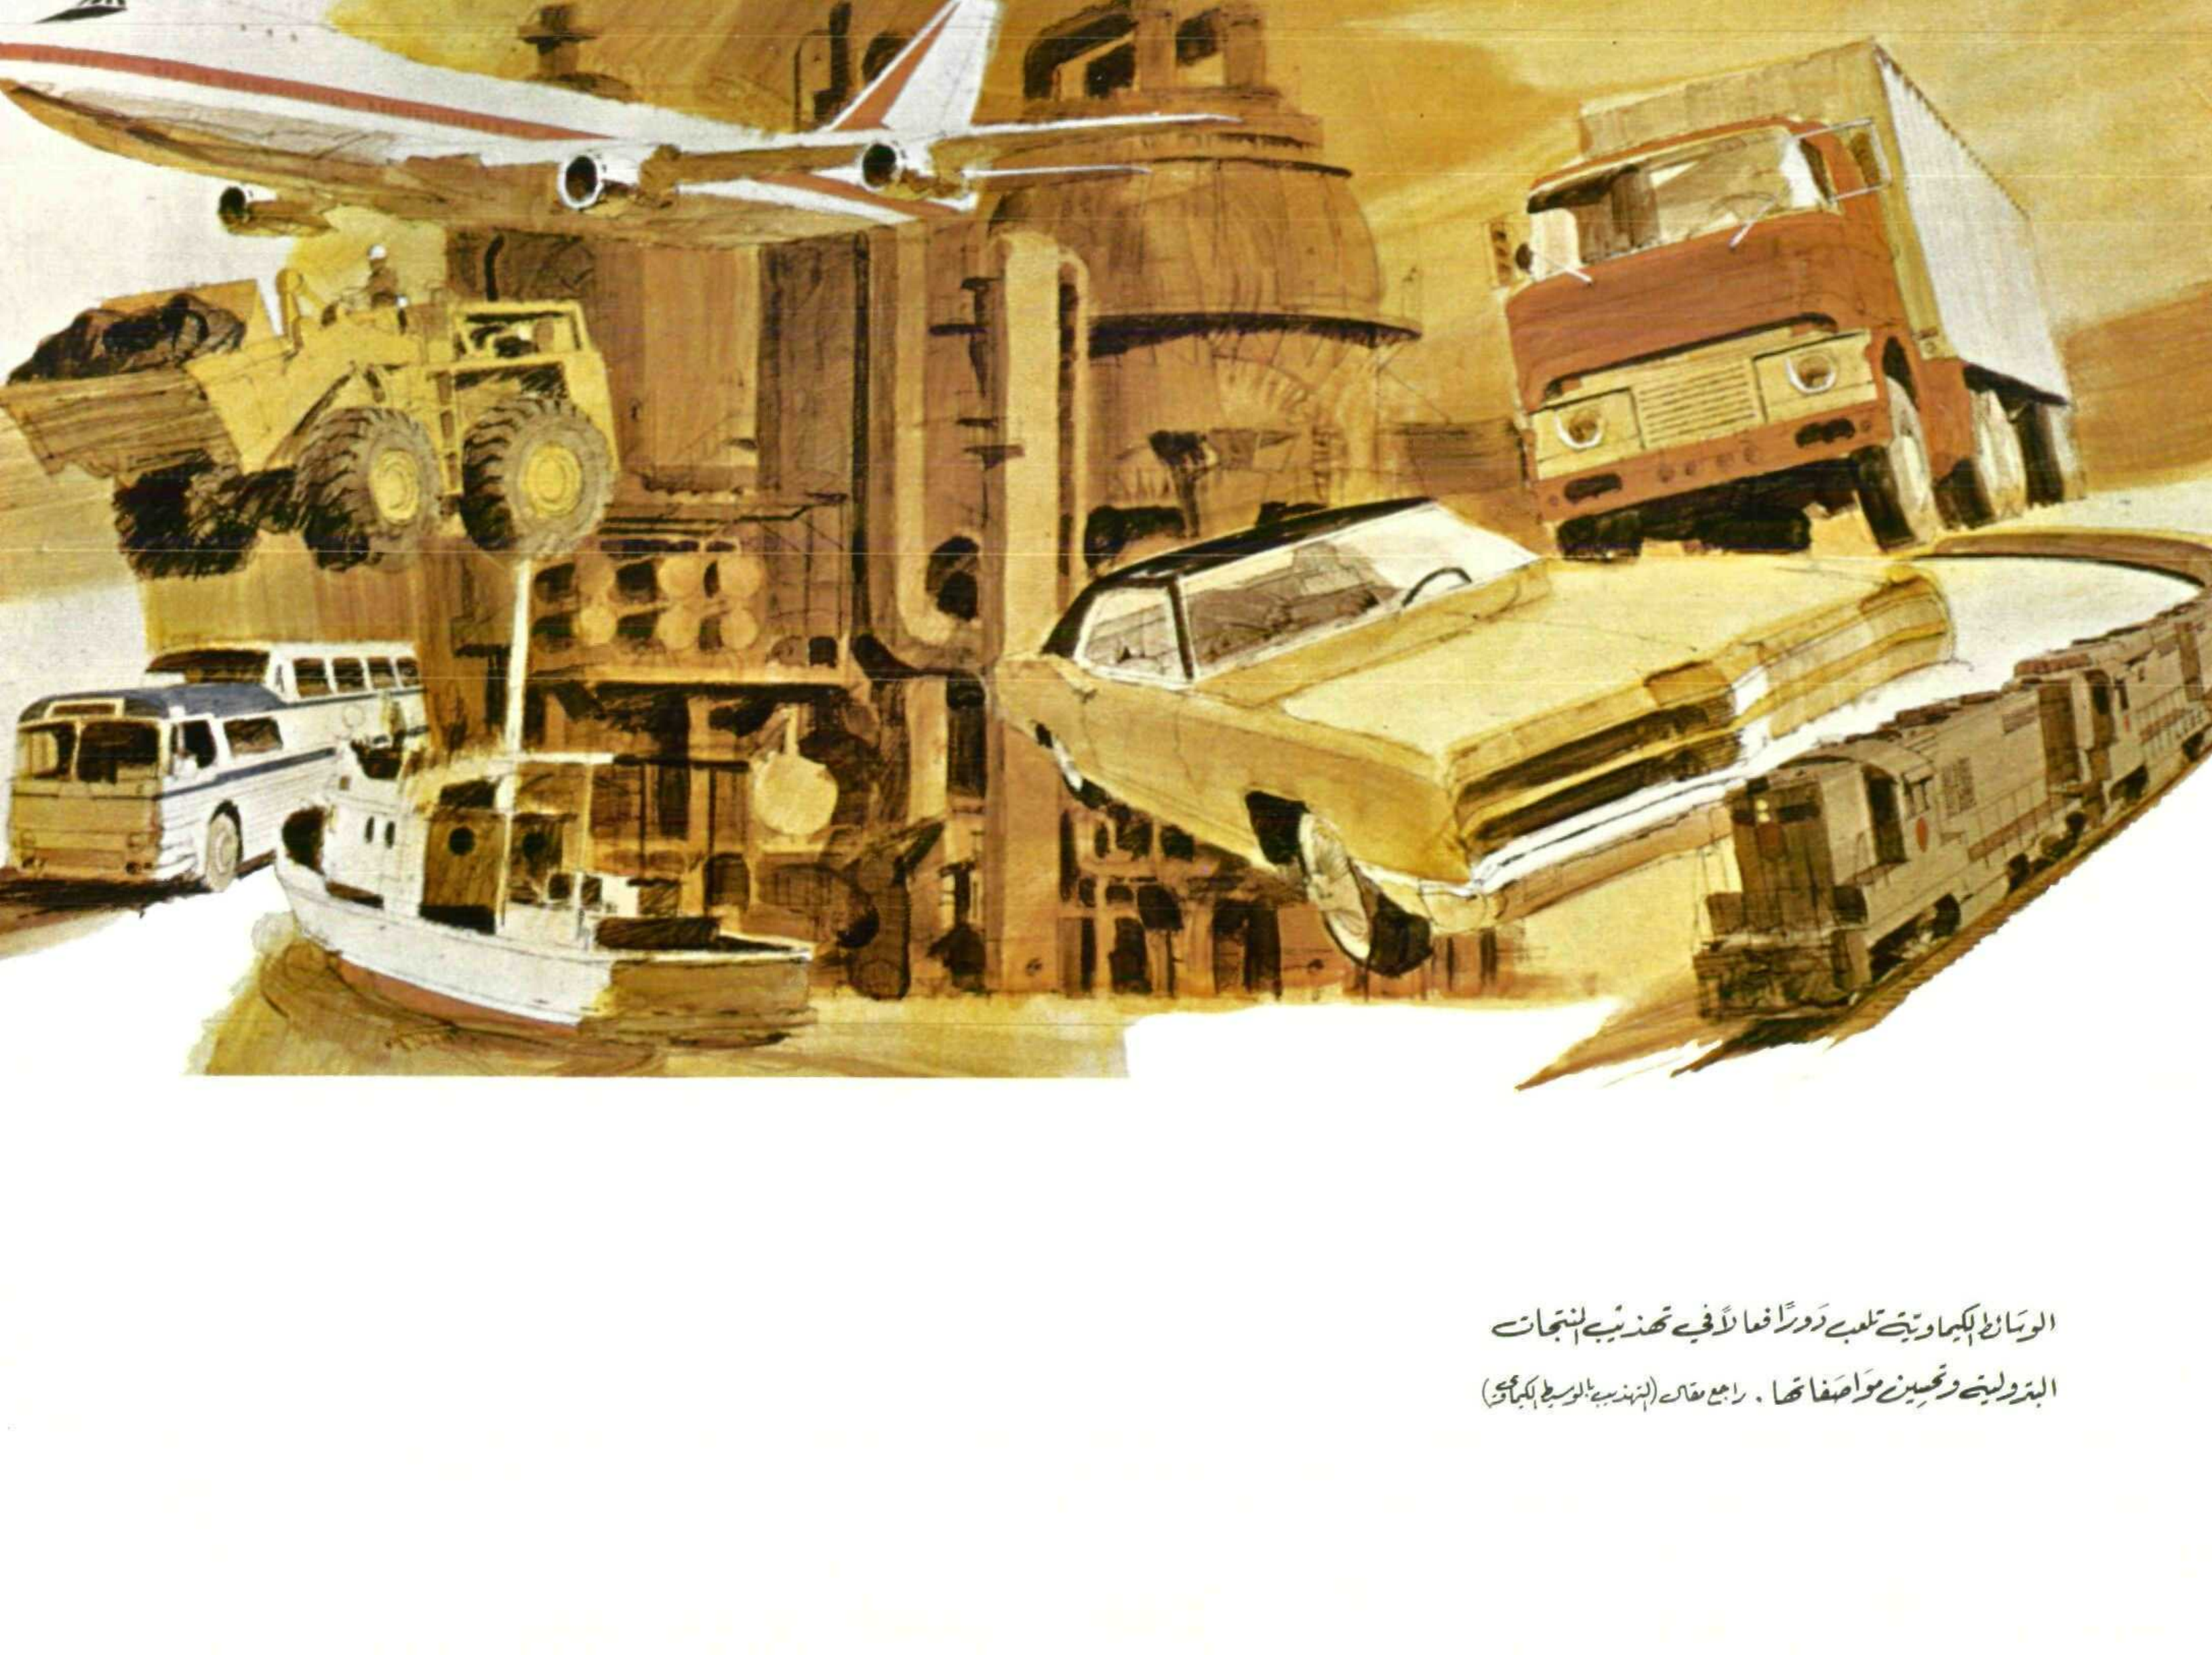 الوسَائط الكيماويّة تلعب دَورًا فعالاً في تهذيب المنتجات
البترولية وتحسِين موَاصَفاتها . راجع مقال (التهذيب بالوسيط الكيماوي)